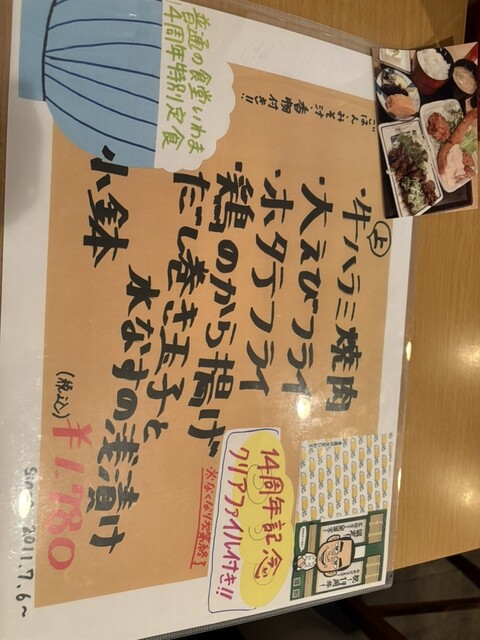 普通の食堂いわま
14周年特別定食
ごはん・みそ汁・香物付き!!
・上牛ハラミ焼肉
・大えびフライ
・ホタテフライ
・鶏のから揚げ
だし巻き玉子と
水なすの浅漬け
小鉢
(税込)¥1,780
14周年記念の
クリアファイル付き!!
※なくなり次第終了
Since 2011.7.6~